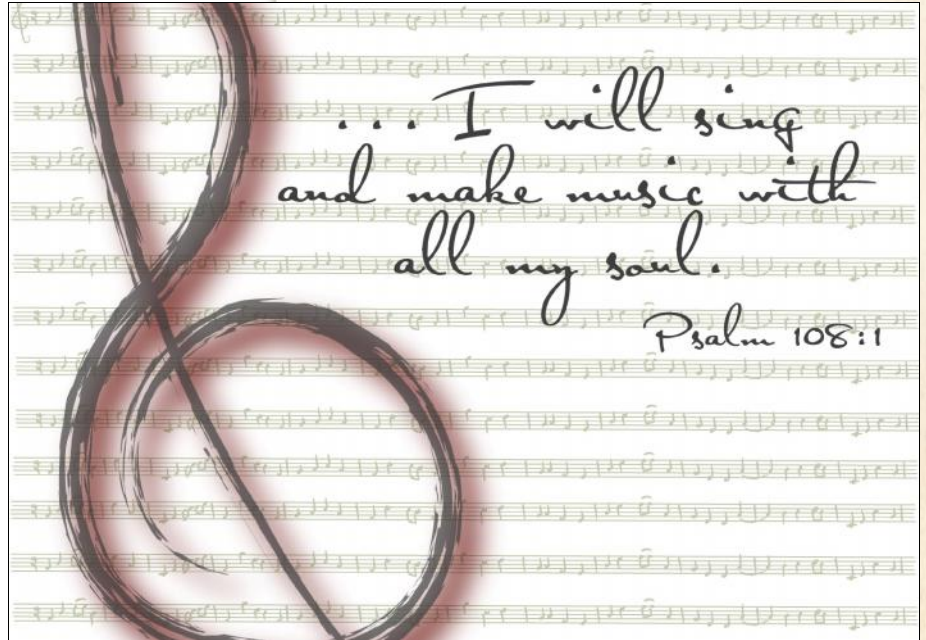 ... I will sing
and make music with
all my soul.
Psalm 108:1